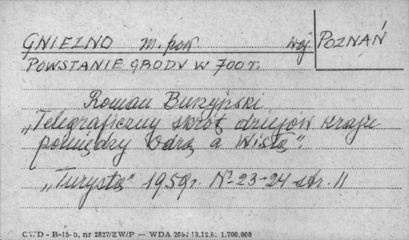 GNIEZNO m. pow. woj. POZNAŃ
POWSTANIE GRODU W 700 r.
Roman Burzyński
„Telegraficzny skrót dziejów kraju
pomiędzy Odrą a Wisłą".
„Turysta" 1959r. Nr 23-24 str. 11
CWD - B-15-b, nr 2827/ZW/P — WDA
1.700.000